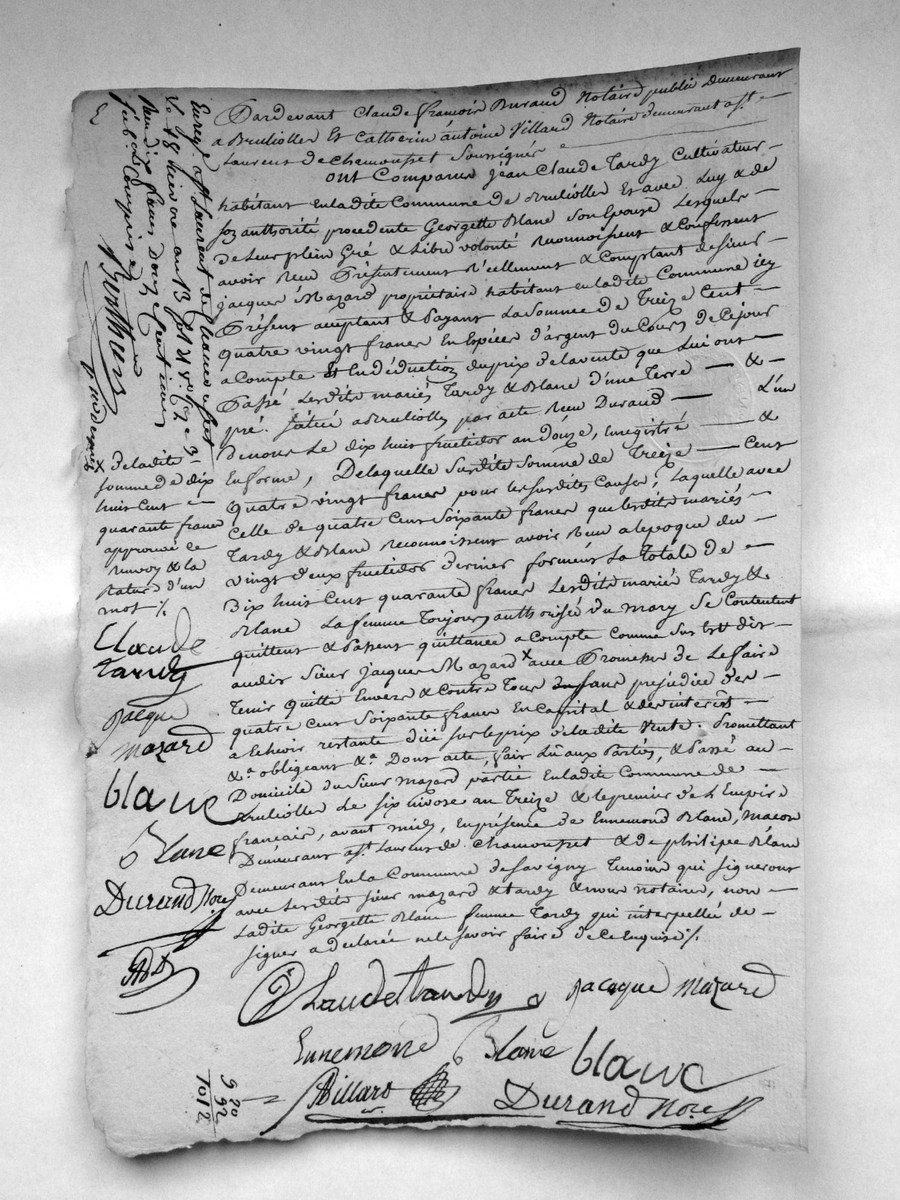 Pardevant Claude françois Durand Notaire public Demeurant
a Brulliolles Et Catherin antoine Villard Notaire demeurant a St
Laurent de Chamousset Soussignés
ont Comparus jean Claude Tardy Cultivateur
habitant Enladite Commune de Brulliolles Et avec Luy & de
son authorité procedante Georgette Blanc Son Epouse Lesquels
de Leur plein Gré & Libre volonté Reconnoissent & Confessent
avoir Reçu Présentement Réellement & Comptant de sieur
jacques Mazard propriétaire habitant enladite Commune icy
Présent acceptant & Payant La Somme de Treize Cent
Quatre vingt francs En Espèces d'argent du Cours de Cejour
a Compte Et Endéduction du prix delavente que Lui ont
Passé Lesdits mariés Tardy & Blanc d'une Terre &
pré Situés a Brulliolles par acte Reçu Durand L'un
denous Le dix huit fructidor an douze, enregistré &
Enforme, Delaquelle Susdite Somme de Treize Cent
Quatre vingt francs pour lessusdites Causes, Laquelle avec
Celle de quatre Cent Soixante francs que lesdits mariés
Tardy & Blanc Reconnoissent avoir Reçu alepoque du
vingt deux fructidor dernier forment La Totale de
Dix huit Cent quarante francs Lesdits mariés Tardy &
Blanc La femme Toujours authorisée du mary Se Contentent
quittent & Passent quittance a Compte Comme Sus Est dit
audit Sieur jacques Mazard x avec Promesse de Lefaire
Tenir Quitte Envers & Contre Tous sans prejudice des
quatre Cent Soixante francs En Capital & des interêts
a Echoir restants dûs sur leprix deladite Vente. Promettant
&a obligeant &a Dont acte, fait Lû aux Parties, & Passé au
Domicile du Sieur Mazard partie Enladite Commune de
Brulliolles Le Six nivose an Treize & lepremier de L'Empire
français, avant midy, Enprésence de Ennemond Blanc, macon
Demeurant a St Laurent de Chamousset & de philipee Blanc
Demeurant En La Commune de Savigny Temoins qui signeront
avec Lesdits sieur mazard & tardy & nous notaires, non
Ladite Georgette Blanc femme Tardy qui interpellée de
signer a declarée nele Savoir faire de Ce Enquise ./.
Claude tardy Jacque mazard
Ennemond Blanc blanc
AVillard Durand Nore
Enregé a St Laurent de Chamousset
Le 18 nivose an 13 fol 21
Reçu dix francs douze Centimes
Subvon Comprise
x deladite
somme de dix
huit Cent
quarante francs
approuvé ce
Renvoy & la
Rature d'un
mot ./.
Claude
tardy
Jacque
mazard
blanc
Blanc
Durand Nore
9 20
92
10 12